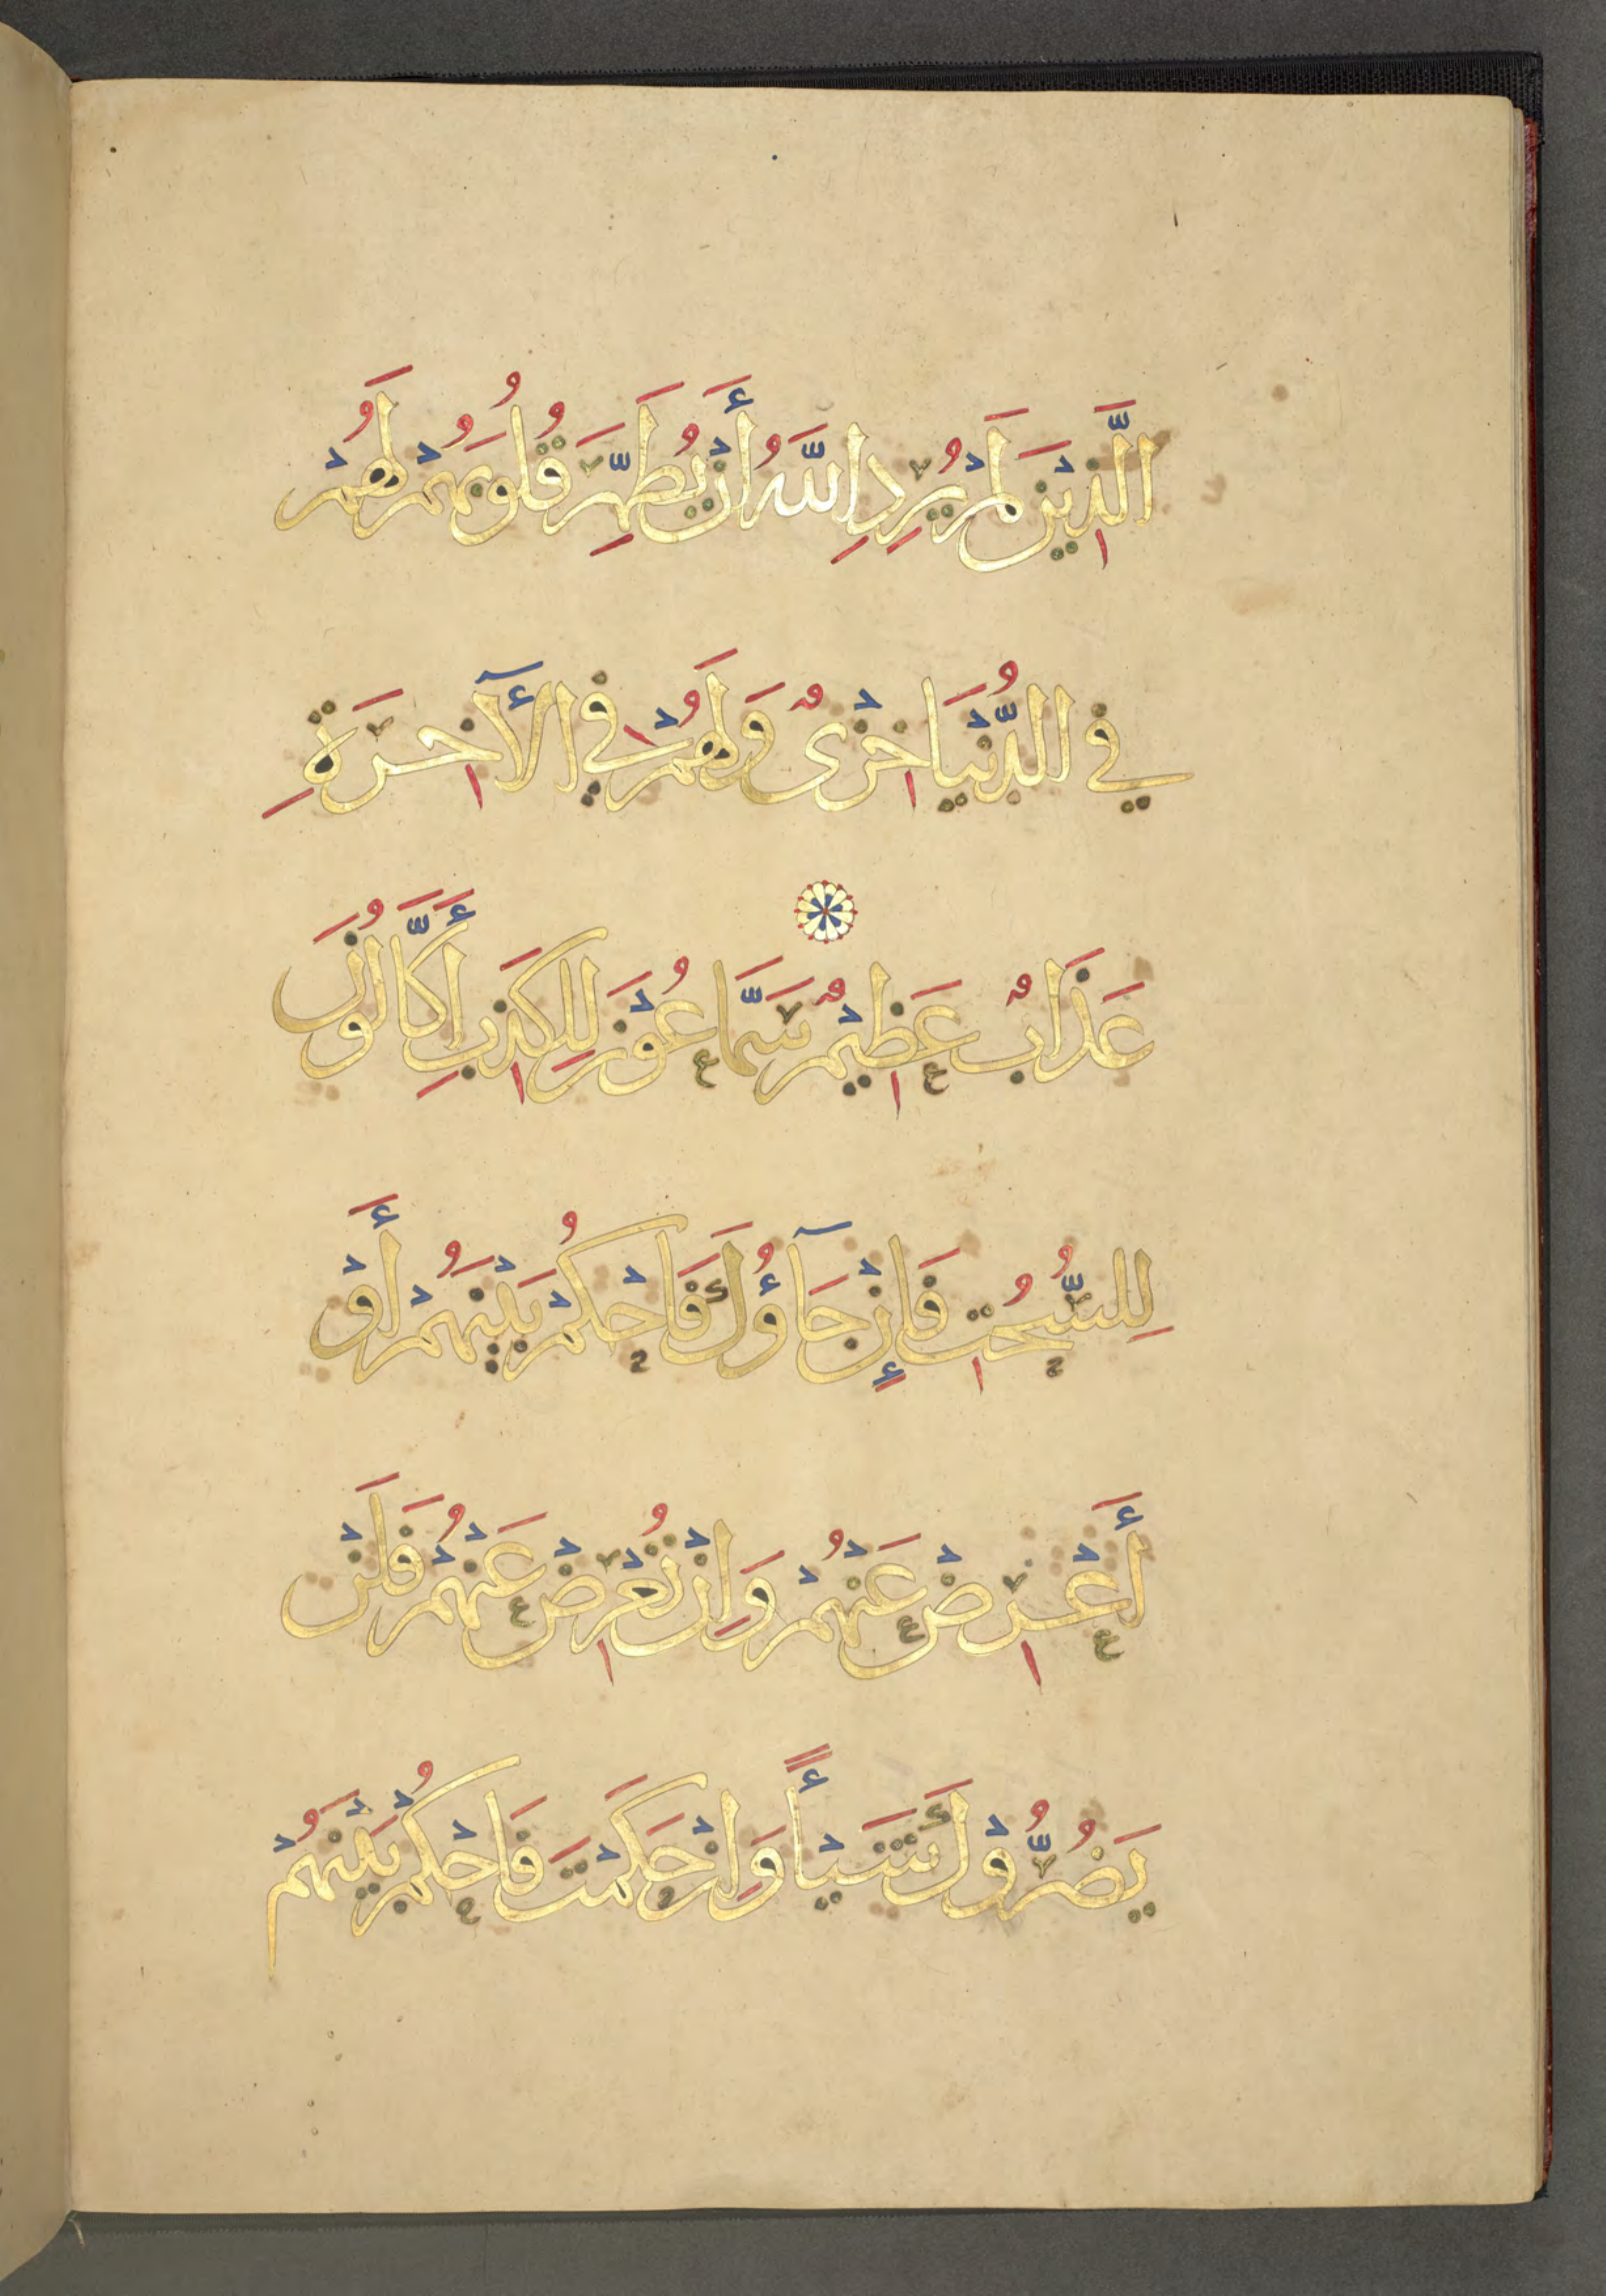 الَّذِيْنَ لَمْ يُرِدِ اللَّهُ أَنْ يُطَهِّرَ قُلُوبَهُمْ لَهُمْ
فِي الدُّنْيَا خِزْيٌ وَلَهُمْ فِي الْآخِرَةِ
عَذَابٌ عَظِيْمٌ سَمَّاعُوْنَ لِلْكَذِبِ أَكَّالُونَ
لِلسُّحُتِ فَإِنْ جَآؤُكَ فَاحْكُمْ بَيْنَهُمْ أَوْ
أَعْرِضْ عَنْهُمْ وَاِنْ تُعْرِضْ عَنْهُمْ فَلَنْ
يَضُرُّوْكَ شَيْأً وَاِنْ حَكَمْتَ فَاحْكُمْ بَيْنَهُمْ